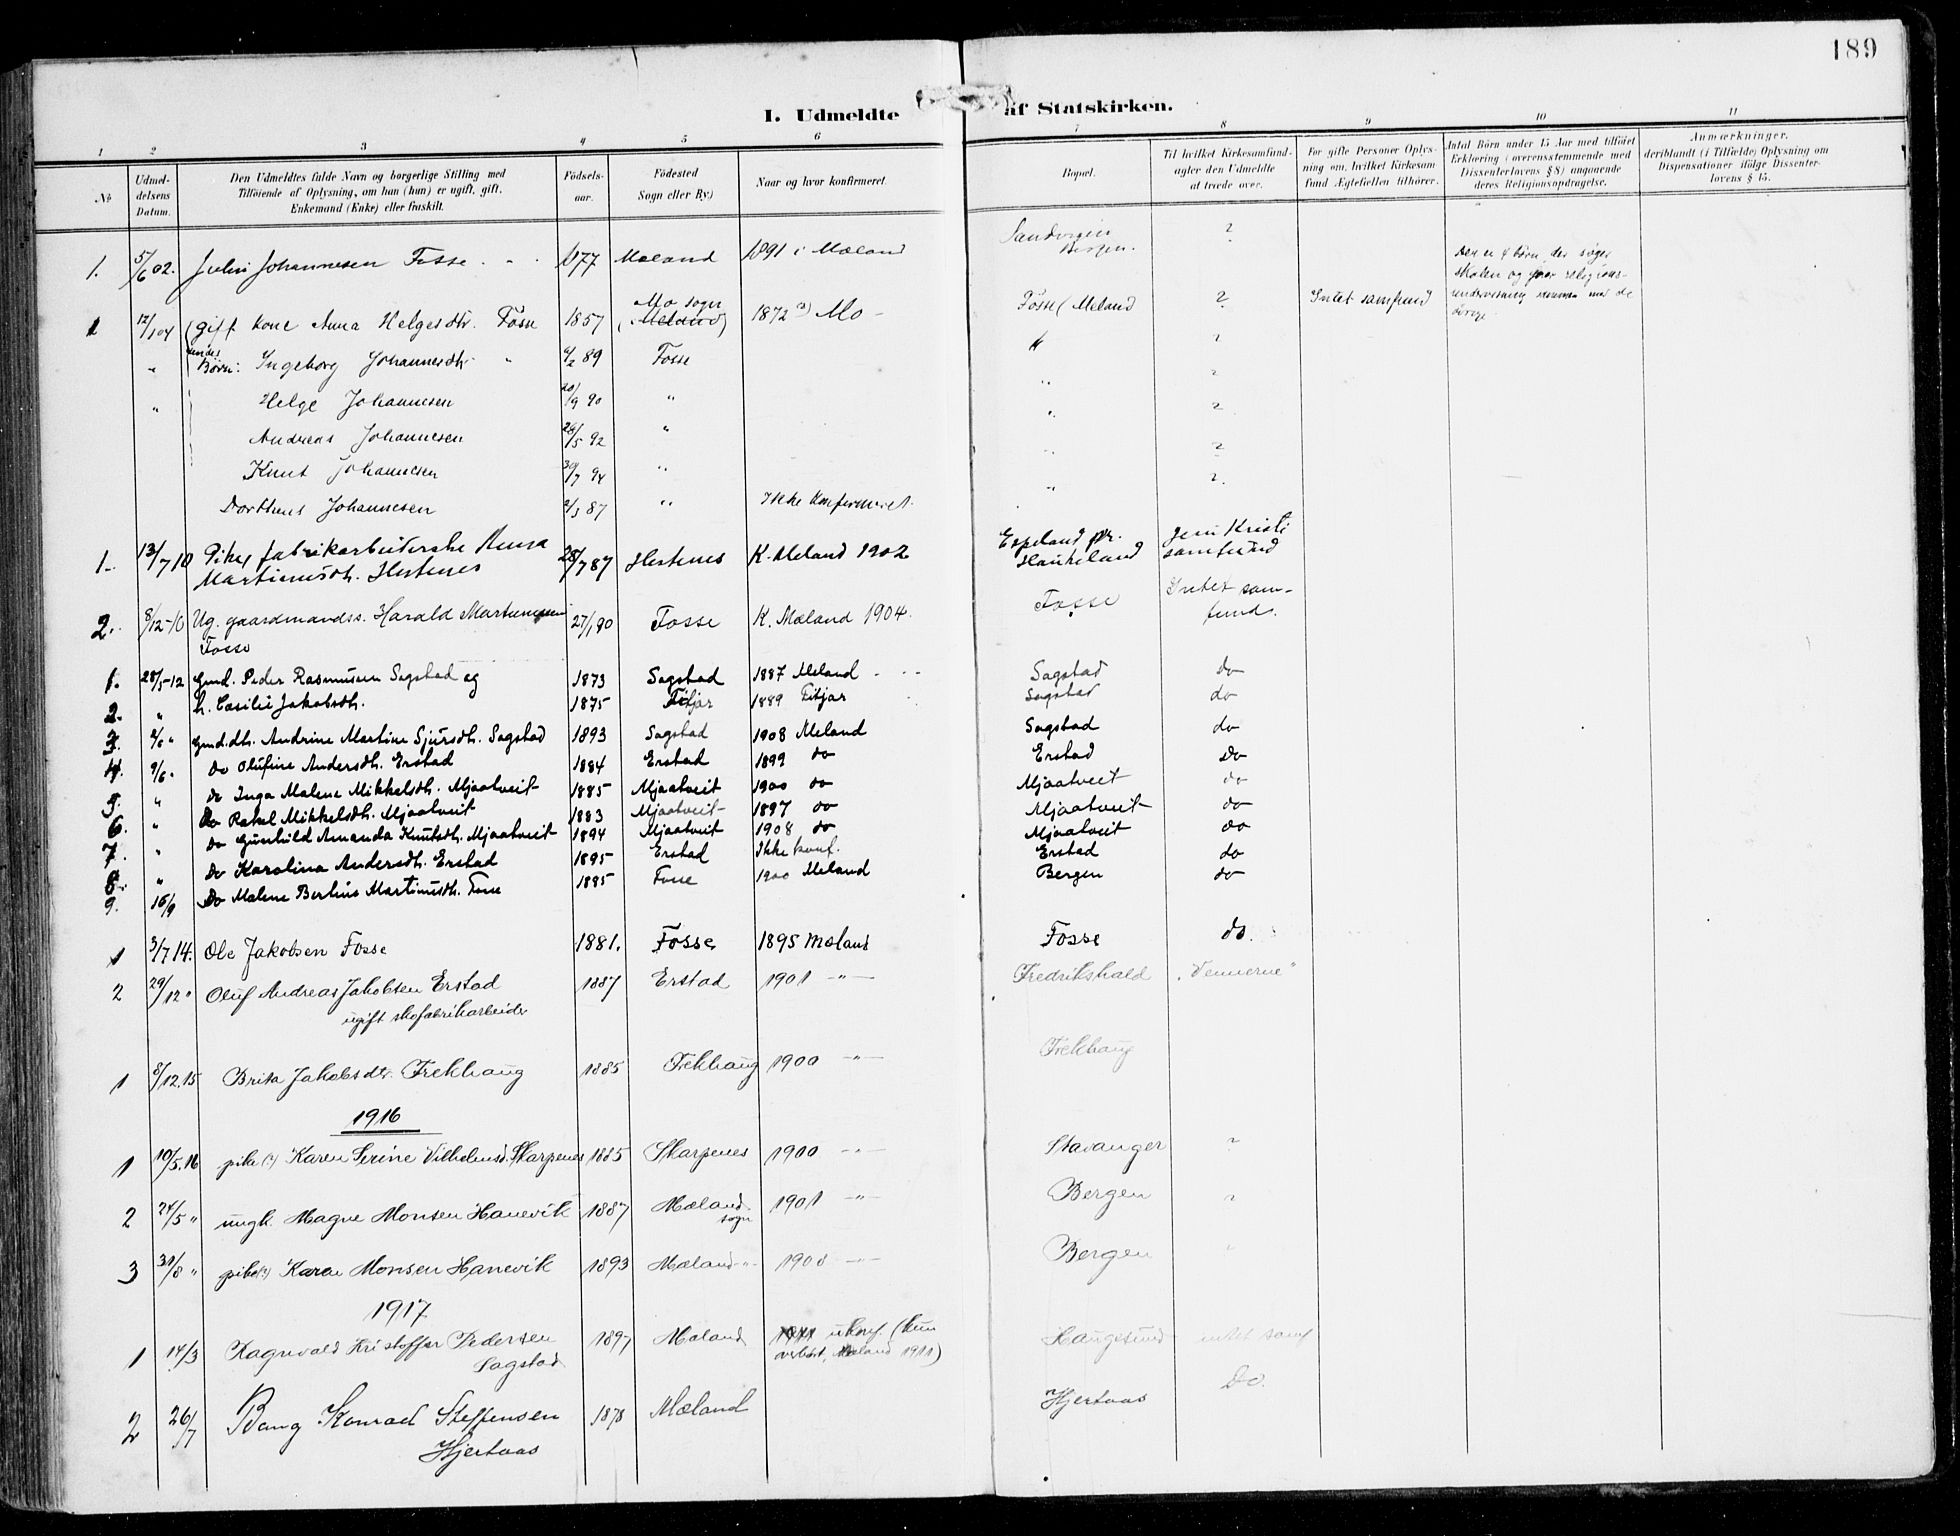 189
I. Udmeldte af Statskirken.
1 2 3 4 5 6 7 8 9 10 11
No
Udmel-
delsens
Datum.
Den Udmeldtes fulde Navn og borgerlige Stilling med
Tilföiende af Oplysning, om han (hun) er ugift, gift,
Enkemand (Enke) eller fraskilt.
Födsels-
aar.
Födested
Sogn eller By.)
Naar og hvor konfirmeret.
Bopæl.
Til hvilket Kirkesamfund-
agter den Udmeldte
at træde over.
For gifte Personer Oplys-
ning om, hvilket Kirkesam
fund Ægtefællen tilhörer.
Antal Börn under 15 Aar med tilföiet
Erklæring (overensstemmende med
Dissenterlovens § 8) angaaende
deres Religionsopdragelse.
Anmærkninger,
deriblandt (i Tilfælde) Oplysning om
Dispensationer ifölge Dissenter-
lovens § 15.
1. 5/6 02. Johannesen Fosse 1877 Mæland 1891 i Mæland Sandvigen ?
Bergen.
1 12/1 04 (gift kone Anna Helgesdtr. Fosse 1857 Mo sogn (Meland) 1872 Mo - Fosse (Meland ? Intet samfund
Den er 4 börn, der söger
skolen og religions-
undervisning sammen med de
övrige
" Börn: Ingeborg Johannesdtr. " 4/2 89 Fosse " ?
" Helge Johannesen 20/9 90 " " ?
Andreas Johannesen 28/5 92 " " ?
Knut Johannesen 30/7 94 " " ?
Dorthens Johannesen 2/3 87 " Ikke konfirmeret. " ?
1. 13/7 10 Pike, fabrikarbeiderske Anna 28/7 87 Hestenes K. Meland 1902 Espeland pr. Jesu Kristi
Martinusdtr. Hestenes Haukeland samfund
2. 8/12-10 Ug. gaardmandss. Harald Martinussen 27/1 90 Fosse K. Mæland 1904. Fosse Intet sam-
Fosse fund.
1. 28/5-12 Gmd. Peder Rasmussen Sagstad og 1873 Sagstad 1887 Meland Sagstad do
2. " h. Cæsilie Jakobsdtr. 1875 Fitjar 1889 Fitjar Sagstad do
3. 2/6 " Gmd.dtr. Andrine Martine Sjursdtr. Sagstad 1893 Sagstad 1908 Meland Sagstad do
4. 9/6 " Do Olufine Andersdtr. Erstad 1884 Erstad 1899 do Erstad Do
5. " do Inga Malene Mikkelsdtr. Mjaatveit 1885 Mjaatveit 1900 do Mjaatveit do
6. " Do Rakel Mikkelsdtr. Mjaatveit 1883 Mjaatveit 1897 do Mjaatveit do
7. " do Gunhild Amanda Knutsdtr. Mjaatveit 1894 Mjaatveit 1908 do Mjaatveit do
8. " Do Karolina Andersdtr. Erstad 1895 Erstad Ikke konf. Erstad do
9. 16/9 Do Malene Bertine Martinusdtr. Fosse 1885 Fosse 1900 Meland Bergen do
1 3/7 14. Ole Jakobsen Fosse 1881. Fosse 1895 Mæland Fosse do.
2 29/12 " Oluf Andreas Jakobsen Erstad 1887 Erstad 1901 -"- Fredrikshald "Vennerne"
ugift skofabrikarbeider
1 8/12.15 Brita Jakobsdtr. Frekhaug 1885 Frekhaug 1900 -"- Frekhaug
1916
1 10/5.16 pike (?) Karen Serine Vilhelmsd. Skarpenes 1885 Skarpenes 1900 -"- Stavanger ?
2 24/5 " ungk. Magne Monsen Hanevik 1887 Mæland sogn 1901 -"- Bergen ?
3 31/8 " pike (?) Karen Monsen Hanevik 1893 Mæland -"- 1908 -"- Bergen "
1917
1 14/3 Ragnvald Kristoffer Pedersen 1897 Mæland ukonf. (kun Haugesund intet samf
Sagstad Mæland 1911)
2 26/7 Bang Konrad Steffensen 1878 Mæland Hjertaas Do.
Hjertaas